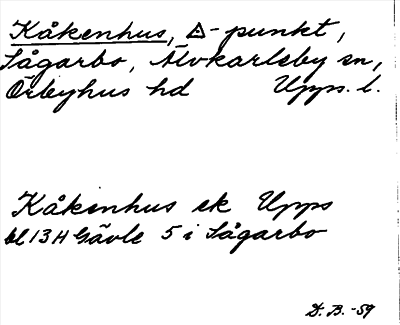 Kåkenhus, △-punkt,
Sågarbo, Älvkarleby sn,
Örbyhus hd Upps. l.
Kåkenhus ek Upps
bl 13H Gävle 5 i Sågarbo
D. B. -59